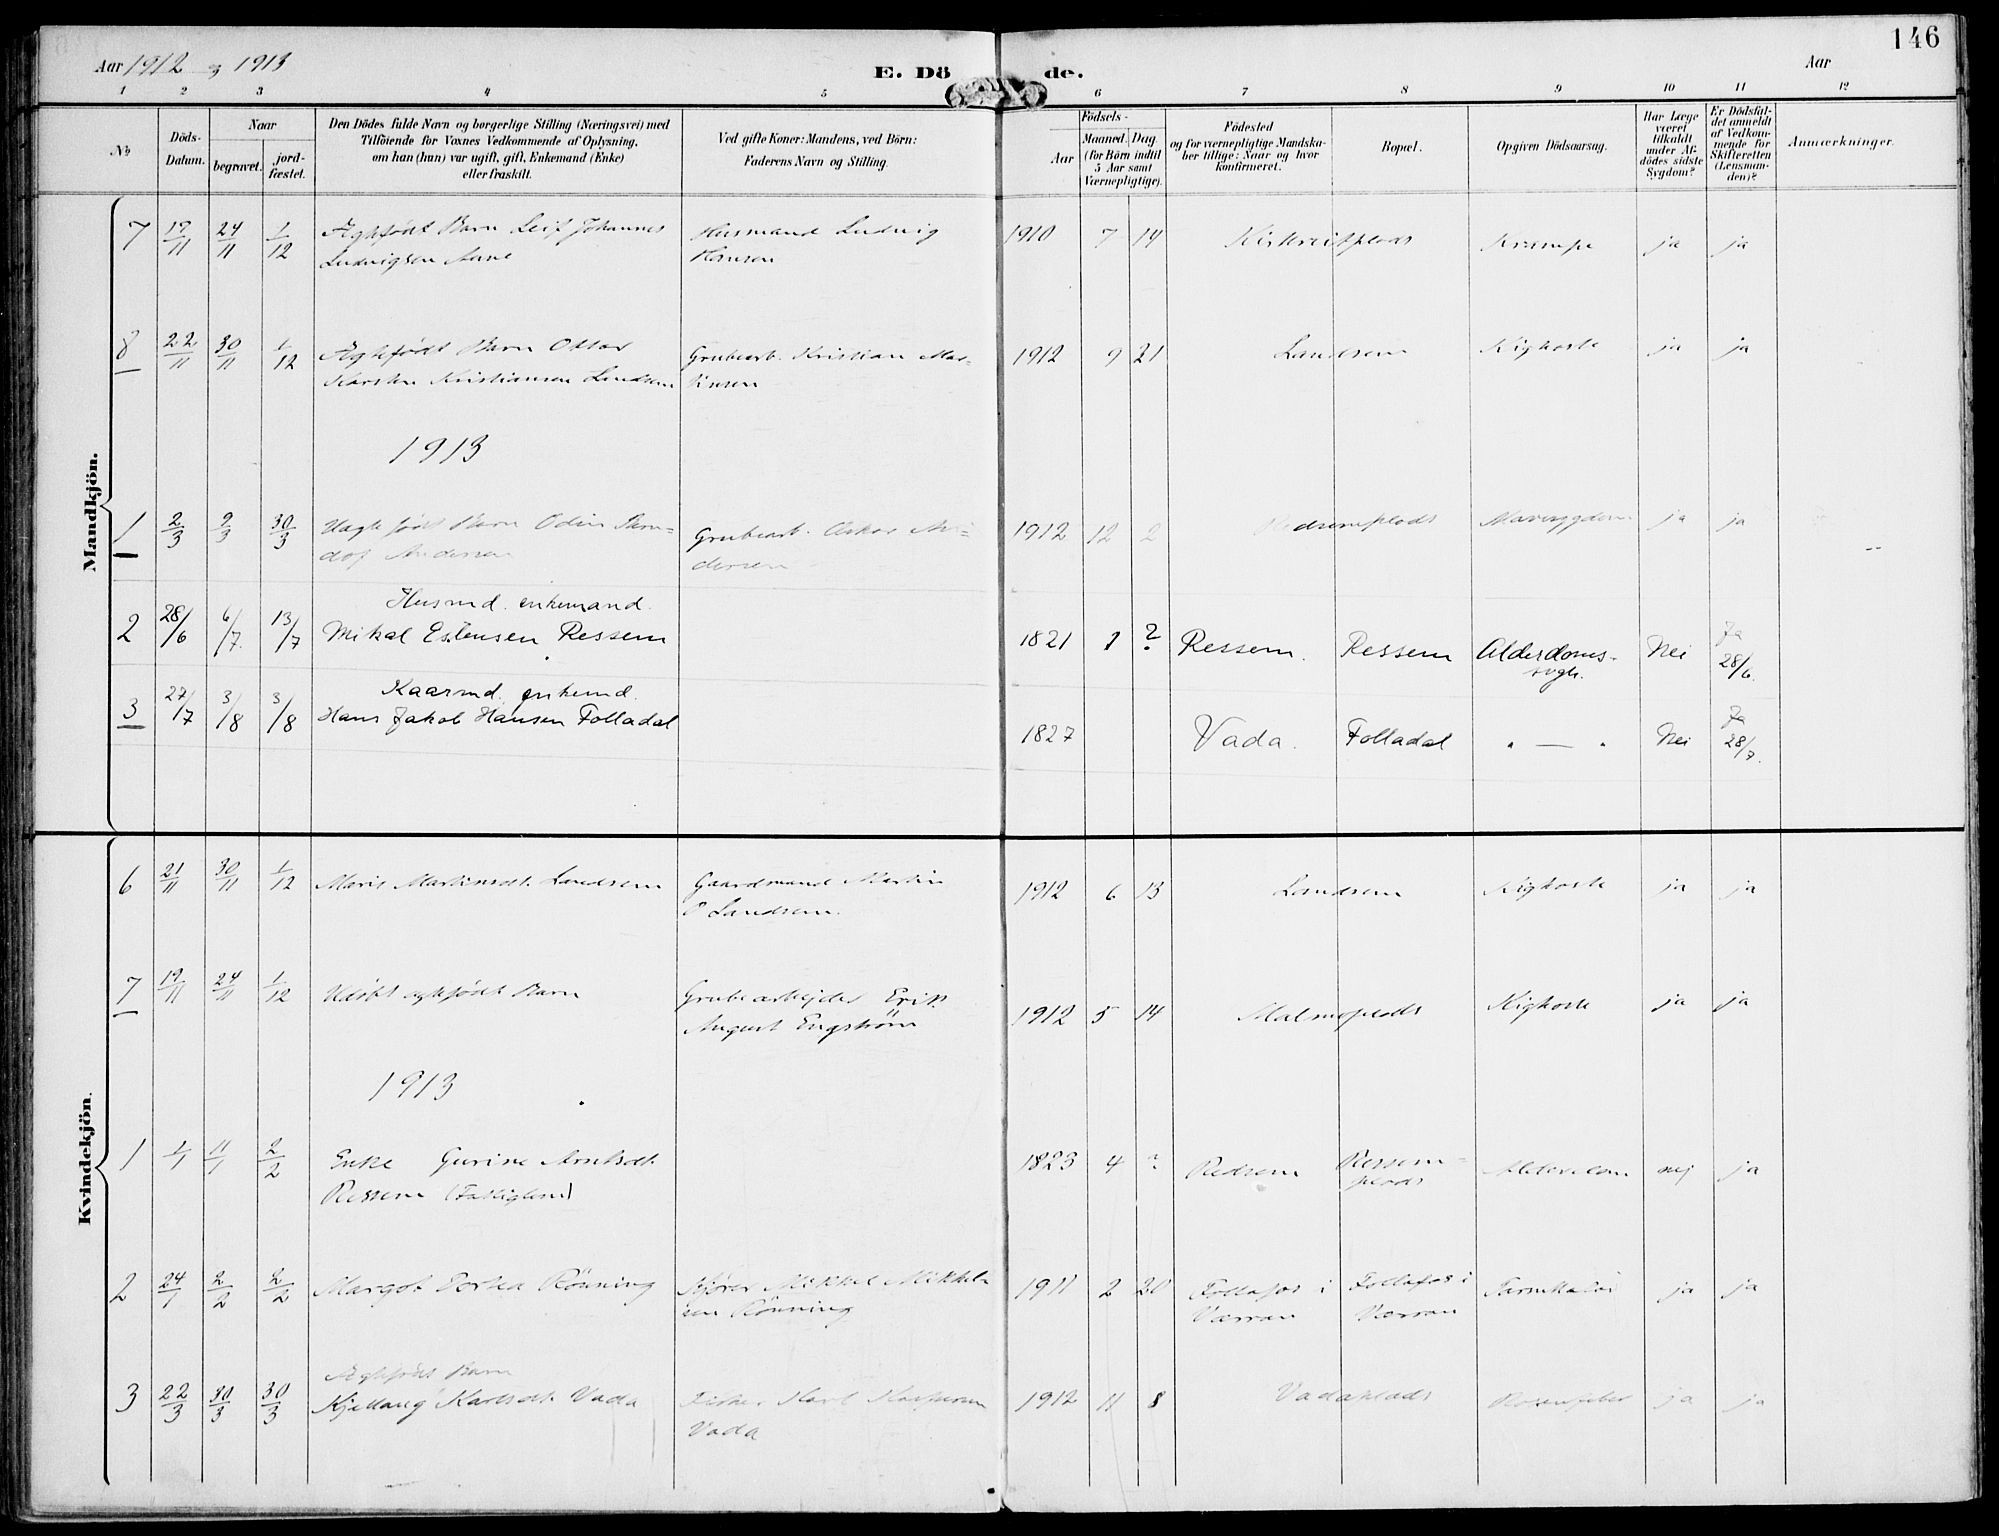 146
Aar 1912 og 1913
E. Döde.
Aar
1 2 3 4 5 6 7 8 9 10 11 12
No
Döds-Datum.
Naar
begravet.
jord-fæstet.
Den Dödes fulde Navn og borgerlige Stilling (Næringsvei) med
Tilföiende for Voxnes Vedkommende af Oplysning,
om han (hun) var ugift, gift, Enkemand (Enke)
eller fraskilt.
Ved gifte Koner: Mandens, ved Börn:
Faderens Navn og Stilling.
Födsels-
Aar
Maaned. Dag
(for Börn indtil
5 Aar samt
Værnepligtige).
Födested
og for værnepligtige Mandska-
ber tillige: Naar og hvor
konfirmeret.
Bopæl.
Opgiven Dödsaarsag.
Har Læge
været
tilkaldt
under Af-
dödes sidste
Sygdom?
Er Dödsfal-
det anmeldt
af Vedkom-
mende for
Skifteretten
(Lensman-
den)?
Anmærkninger.
Mandkjön.
7 19/11 24/11 1/12 Ægtefödt Barn Leif Johannes Husmand Ludvig 1910 7 14 Krampe ja ja
Ludvigsen Hansen
8 22/11 30/11 1/12 Ægtefödt Barn Ottar Grubearb. Kristian Mar- 1912 9 21 Landsem Kighoste ja ja
Karsten Kristiansen Landsem tinsen
1913
1 2/3 9/3 30/3 Uægtefödt Barn Odin Grubearb. Oskar An- 1912 12 2 Mavesygdom ja ja
Andersen dersen
Husmd. enkemand.
2 28/6 6/7 13/7 Mikal Estensen Ressem 1821 1 ? Ressem. Ressem Alderdoms- Nei Ja
svgh. 28/6.
Kaarmd. enkemd.
3 27/7 3/8 3/8 Hans Jakob Hansen Folladal 1827 Vada. Folladal " — " Nei Ja
28/7.
Kvindekjön.
6 21/11 30/11 1/12 Marit Martinsdt. Landsem Gaardmand Martin 1912 6 13 Landsem Kighoste ja ja
O Landsem.
7 19/11 24/11 1/12 Udöbt ægtefödt Barn Grubearbejder Erik 1912 5 14 Malmoplads Kighoste ja ja
August Engström
1913
1 1/1 11/1 2/2 Enke Gurine Arntsdt. 1823 4 ? Redsem Ressem= Alderdom nej ja
Ressem (Fattiglem) plads
2 24/1 2/2 2/2 Margot Torka Rönning Kjörer Mikkel Mikkel- 1911 2 20 Follafos i Follafos i Tarmkatar ja ja
sen Rönning Værran Værran
Ægtefödt Barn
3 22/3 30/3 30/3 Kjellaug Karlsdt. Vada Fisker Karl Kaspersen 1912 11 8 Vadaplads ja ja
Vada